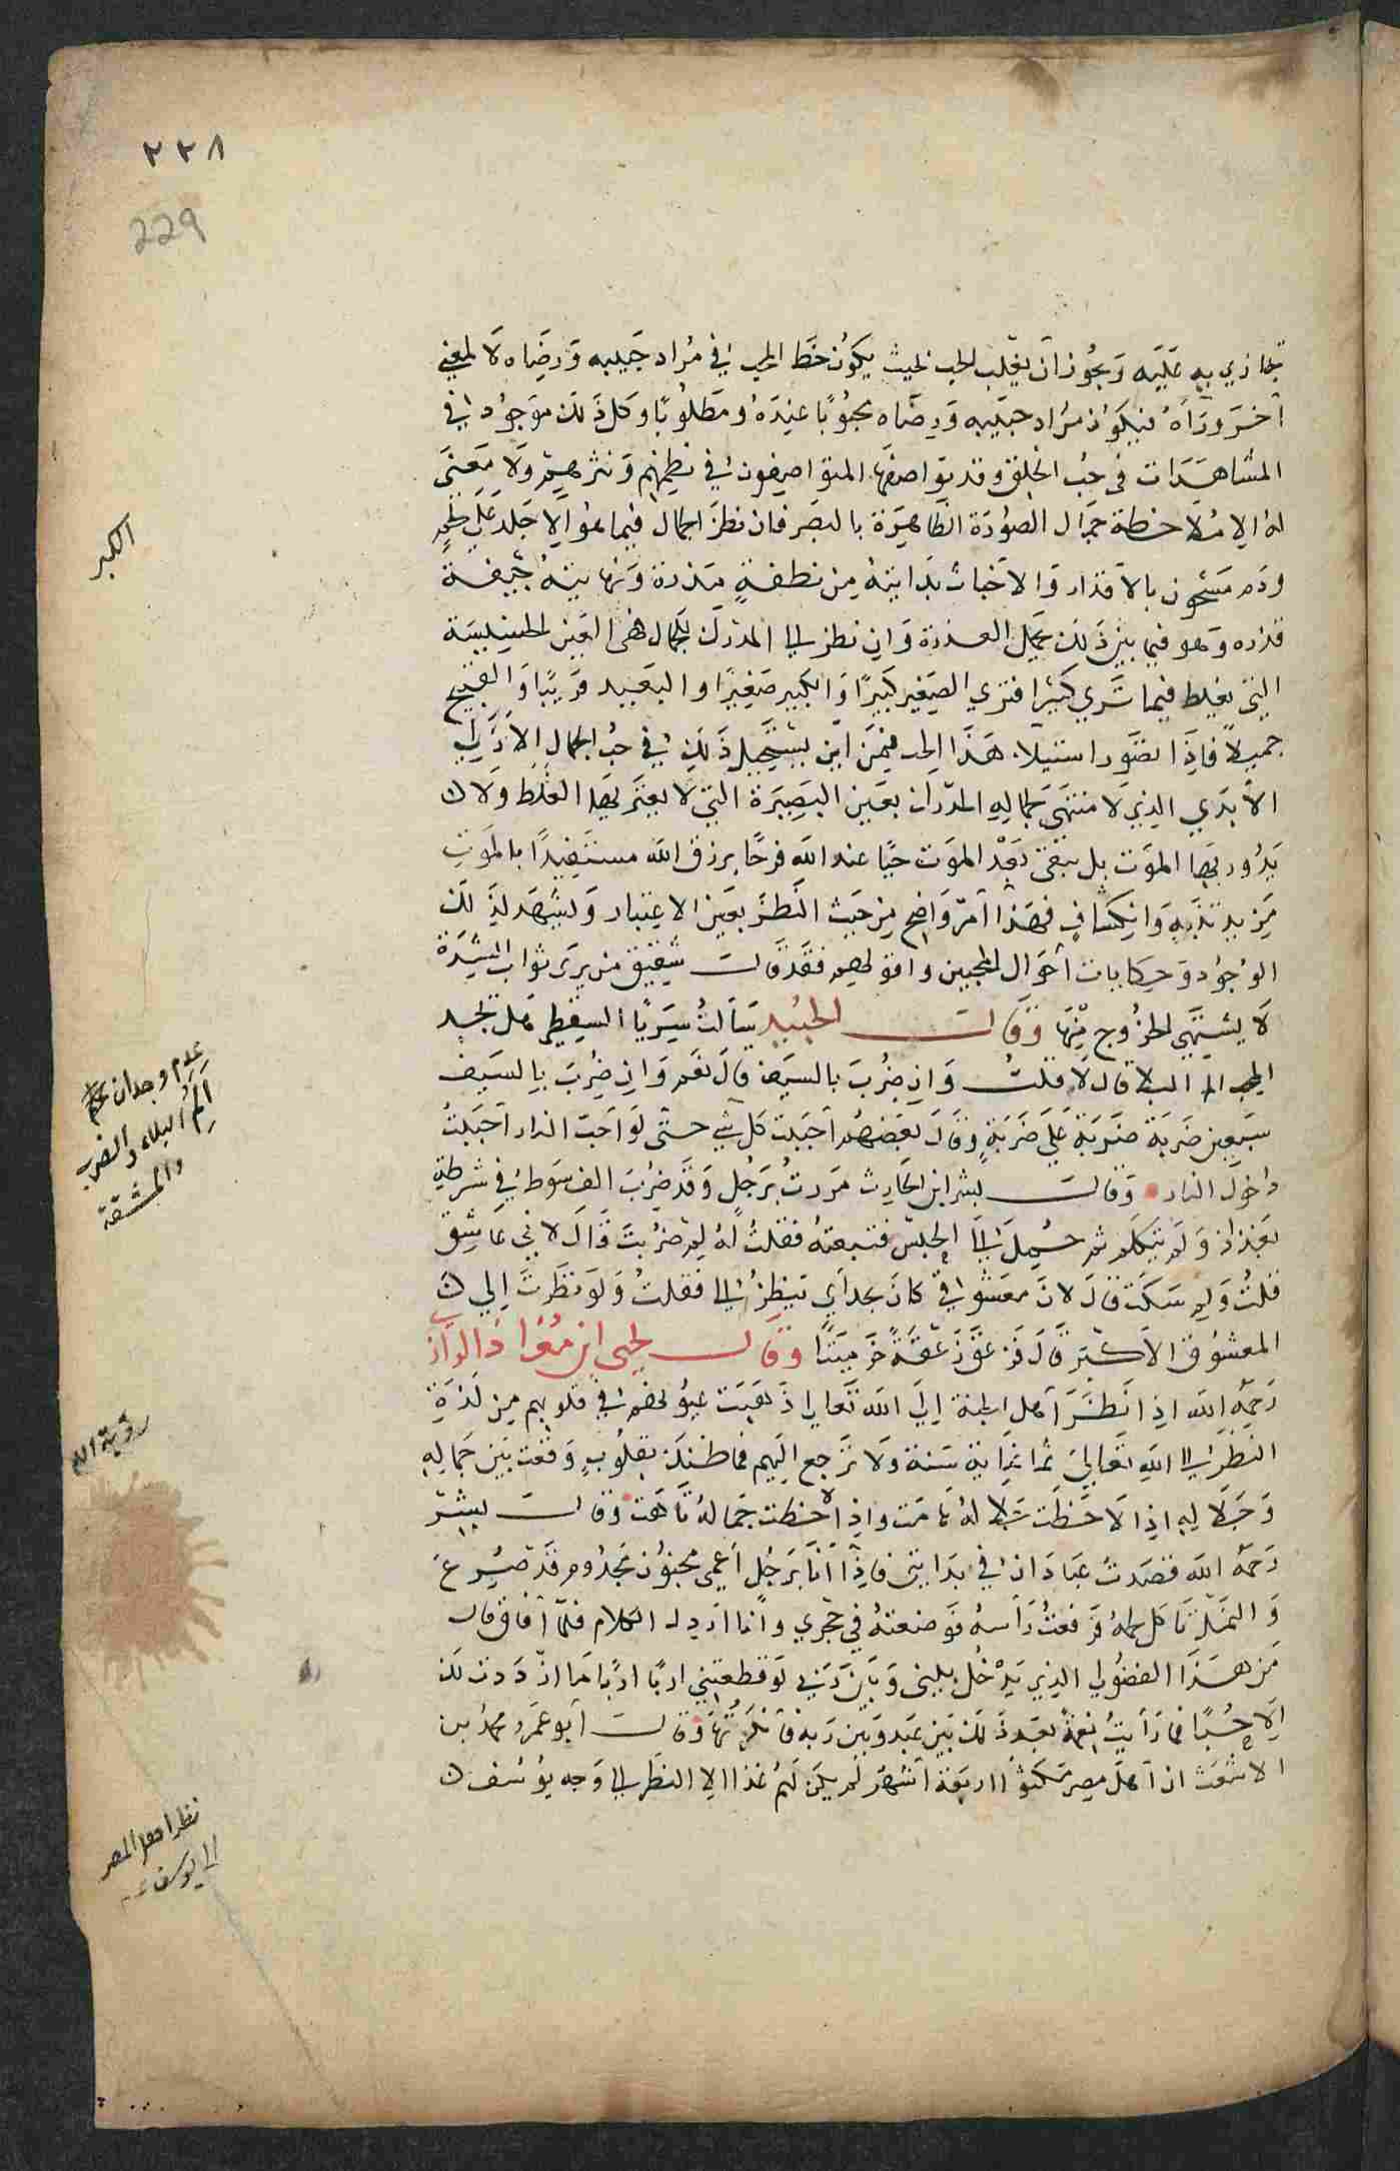 ٢٢٨
229
يجازي به عليه ويجوز ان يغلب الحب بحيث يكون حظ المحب في مراد حبيبه ورضاه لا لمعني
آخر وراه فيكون مراد حبيبه ورضاه محبوبًا عنده ومطلوبًا وكل ذلك موجود في
المشاهدات في حب الخلق وقد تواصفها المتواصفون في نظمهم ونثرهم ولا معنى
له الا ملاحظة جمال الصورة الظاهرة بالبصر فان نظر الجمال فيما هو الا جلد على لحم
ودم مشحون بالاقذار والاخباث بدايته من نطفة مذرة ونهايته جيفة
قذره وهو فيما بين ذلك يحمل العذرة وان نظر الى المدرك للجمال فهي العين الخسيسة
التي يغلط فيما تري كثيرا فتري الصغير كبيرًا والكبير صغيرًا والبعيد قريبًا والقبيح
جميلاً فاذا تصور استيلاء هذا الحد فمن اين يستحيل ذلك في حب الجمال الازلي
الابدي الذي لا منتهى لجماله المدرك بعين البصيرة التي لا يعتريها الغلط ولا
يدور بها الموت بل يبقى بعد الموت حيًا عند الله فرحًا برزق الله مستفيدًا بالموت
مزيد تنبه وانكشاف فهذا امر واضح من حيث النظر بعين الاعتبار ويشهد لذلك
الوجود وحكايات احوال المحبين واقوالهم فقد قال شقيق من يرى ثواب الشدة
لا يشتهي الخروج منها وقال الجنيد سألت سريًا السقطي هل يجد
المحب الم البلا قال لا قلت وان ضرب بالسيف قال نعم وان ضرب بالسيف
سبعين ضربة ضربة على ضربة وقال بعضهم احببت كل شي حتى لو احب النار احببت
دخول النار وقال بشر ابن الحارث مررت برجل وقد ضرب الف سوط في شرطية
بغداد ولم يتكلم ثم حمل الى الحبس فتبعته فقلت له لم ضربت قال لاني عاشق
قلت ولم سكت قال لان معشوقي كان بحدآي ينظر الى فقلت ولو نظرت إلى
المعشوق الاكبر قال فزعق زعقة خر ميتًا وقال يحيى ابن معاذ الراز
رحمه الله اذا نظر اهل الجنة إلى الله تعالى ذهبت عيونهم في قلوبهم من لذة
النظر الى الله تعالى ثمانماية سنة ولا ترجع اليهم فما ظنك بقلوب وقعت بين جماله
وجلاله اذا لاحظت جلاله هامت واذا لاحظت جماله تاهت وقال بشر
رحمه الله قصدت عبادان في بدايتى فاذا انا برجل اعمى مجنون مجدوم قد صرع
والنمل تاكل لحمه فرفعت رأسه فوضعته في حجري وانا اردد الكلام فلما افاق قال
من هذا الفضولي الذي يدخل بيني وبين ربي لو قطعني اربًا اربًا ما ازددت له
الا حبًا فما رأيت نعمة بعد ذلك بين عبد وبين ربه فانكرتها وقال ابو عمرو محمد بن
الاشعث ان اهل مصر مكثوا اربعة اشهر لم يكن لهم غذا الا النظر الى وجه يوسف
اكبر
عدم وجدان محب
الم البلاء والضرب
والمشقة
رؤية الله
نظر اهل المصر
الى يوسف